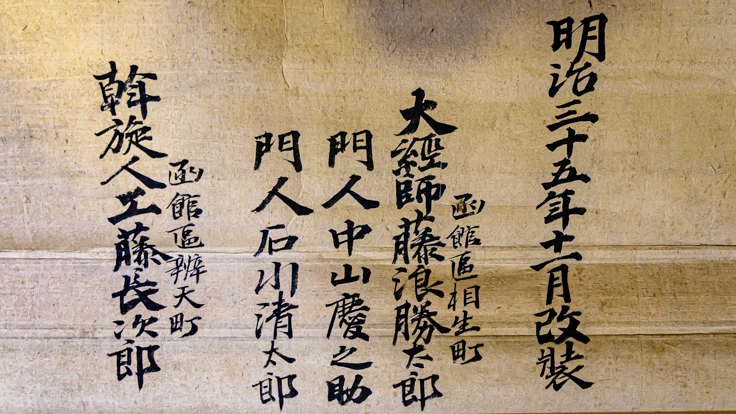 明治三十五年十一月改裝
函館區相生町
大經師藤浪勝太郎
門人中山慶之助
門人石川清太郎
函館區辨天町
斡旋人工藤長次郎